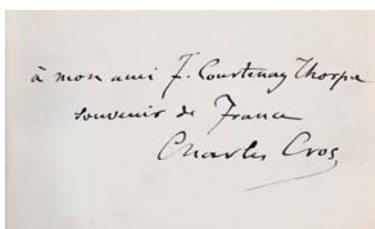 à mon ami F. Courtenay Thorpe
souvenir de France
Charles Cros